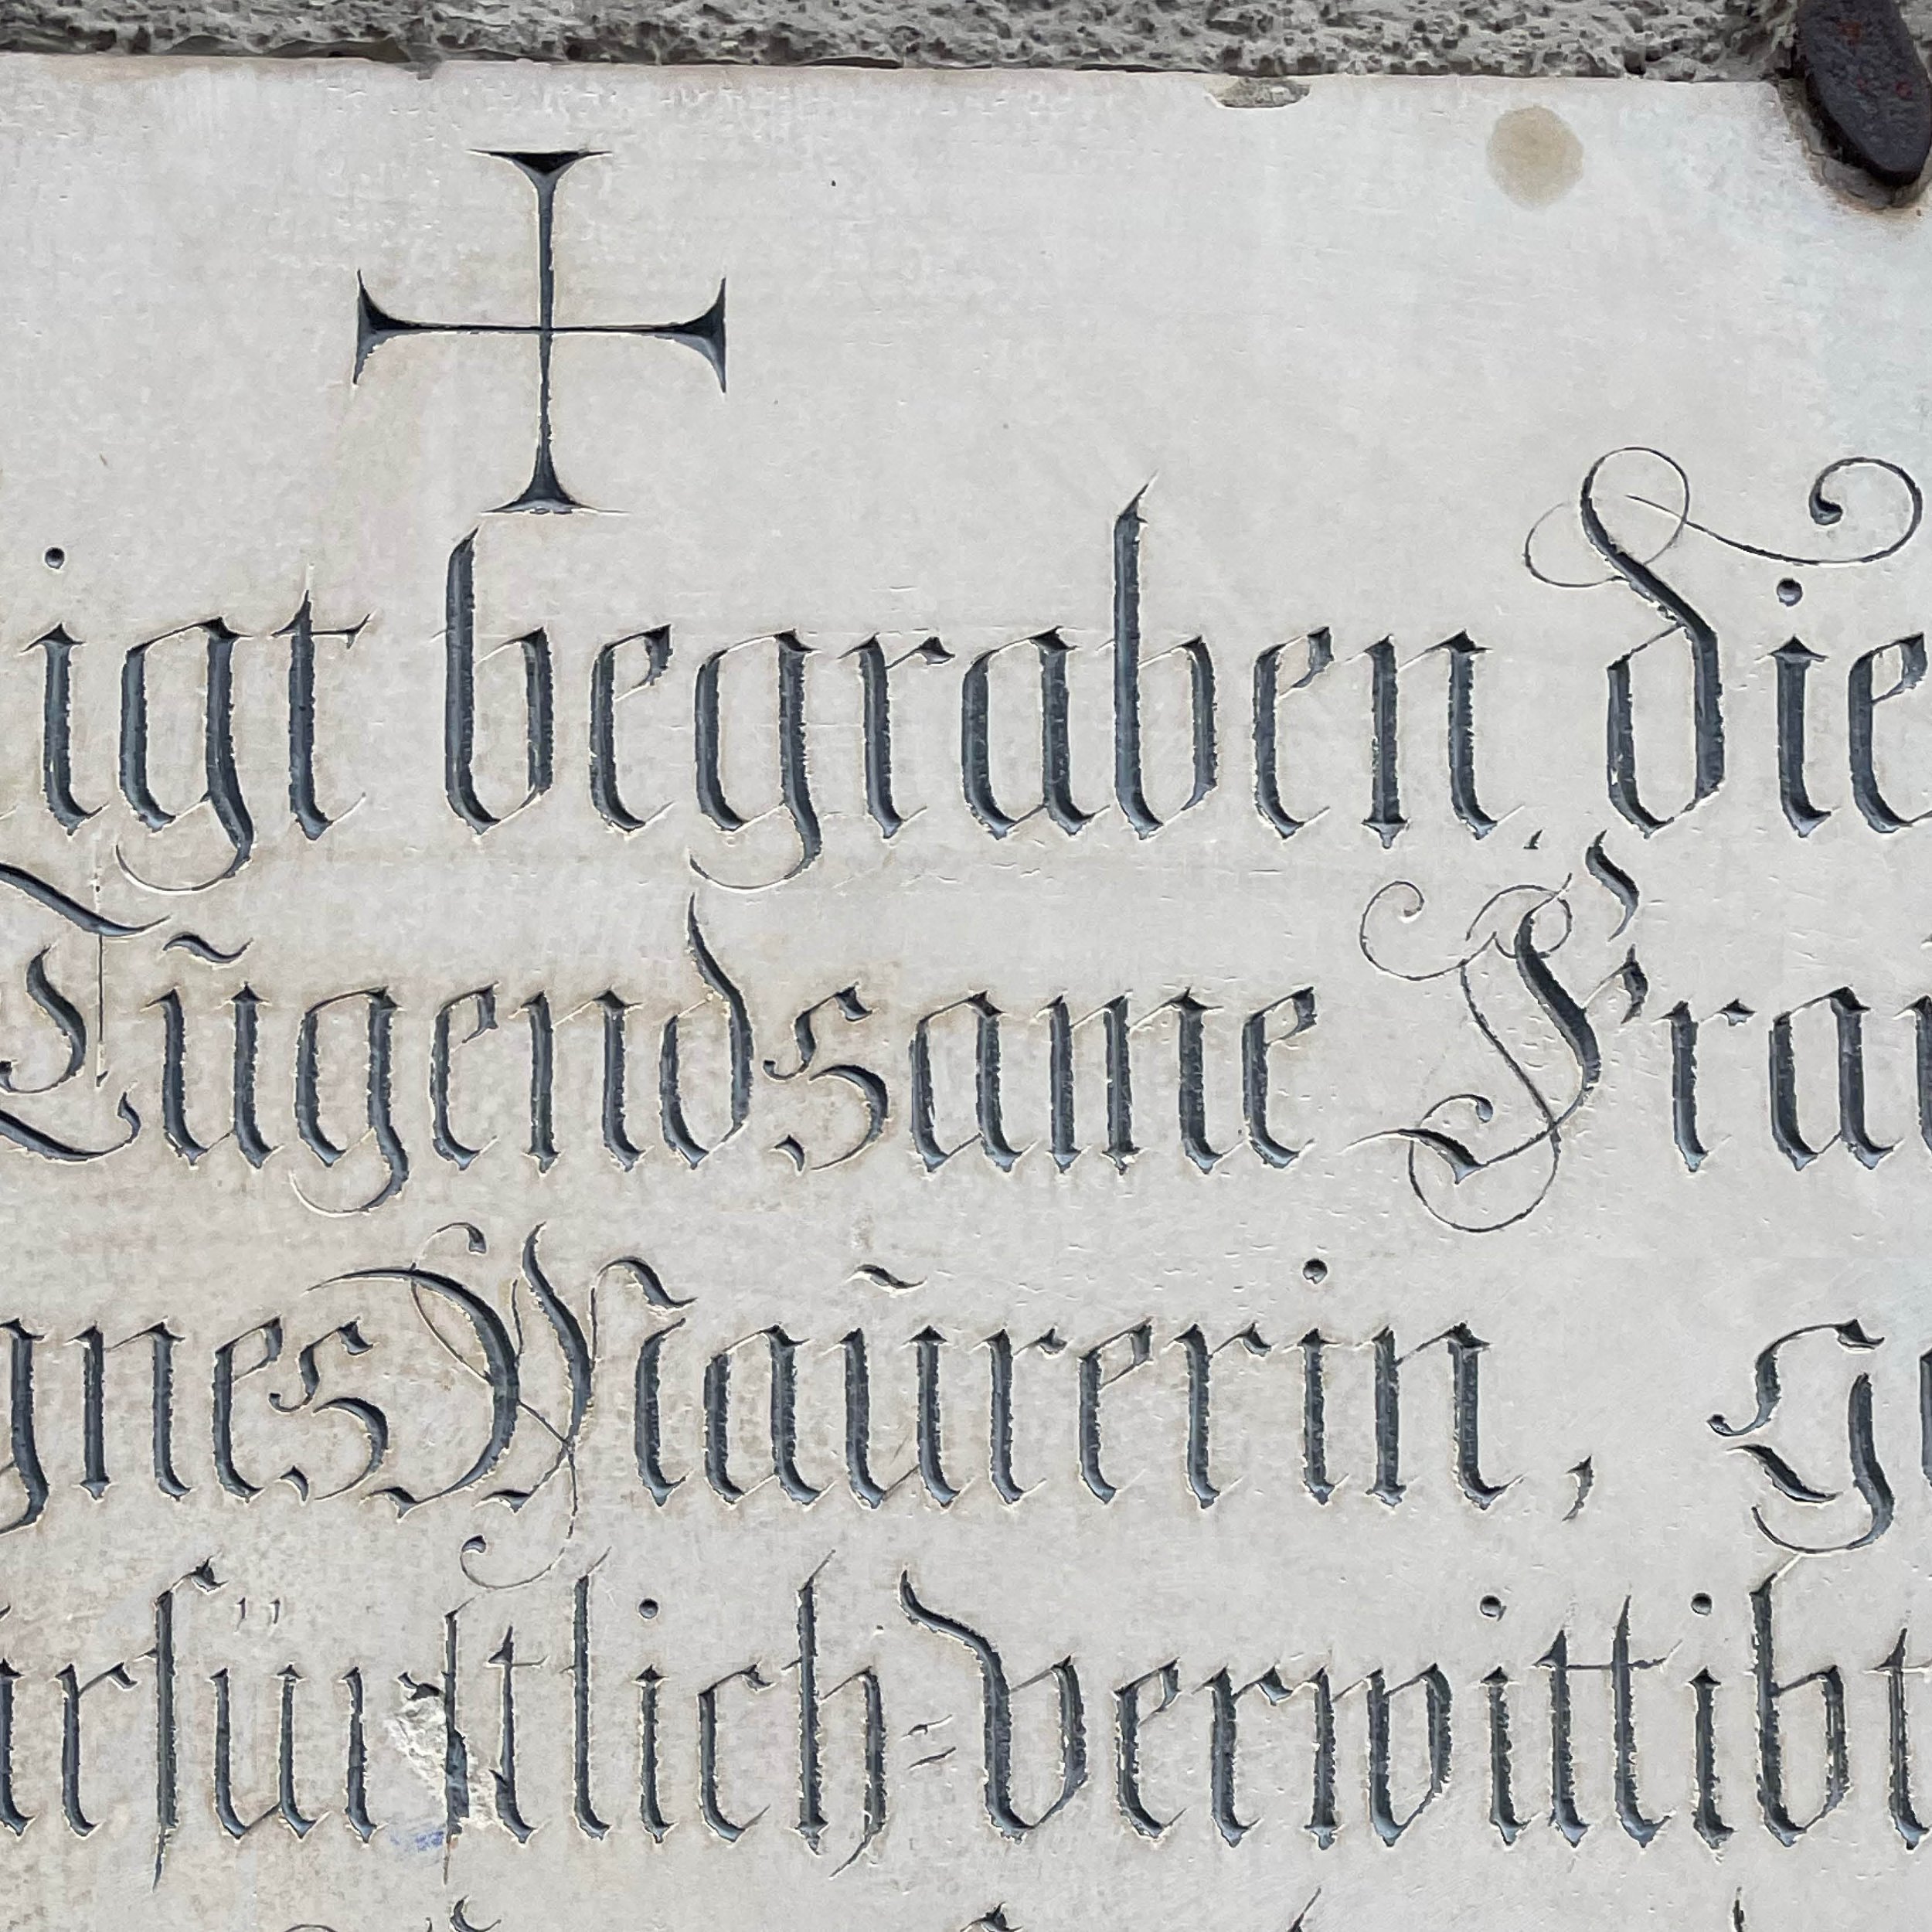 igt begraben die
Tugendsame Frau
gnes Maurerin, ge
urfürstlich=verwittibt